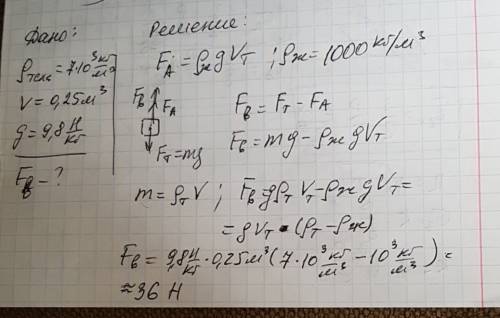 Дано:
ρтела = 7·10³ кг/м³
V = 0,25 м³
g = 9,8 Н/кг
Fв - ?
Решение:
FА = ρж g Vт ; ρж = 1000 кг/м³
Fв FА
Fт = mg
Fв = Fт - FА
Fв = mg - ρж g Vт
m = ρт V ; Fв = gρт Vт - ρж g Vт =
= g Vт · (ρт - ρж)
Fв = 9,8 Н/кг · 0,25 м³ (7·10³ кг/м³ - 10³ кг/м³) =
≈ 36 Н